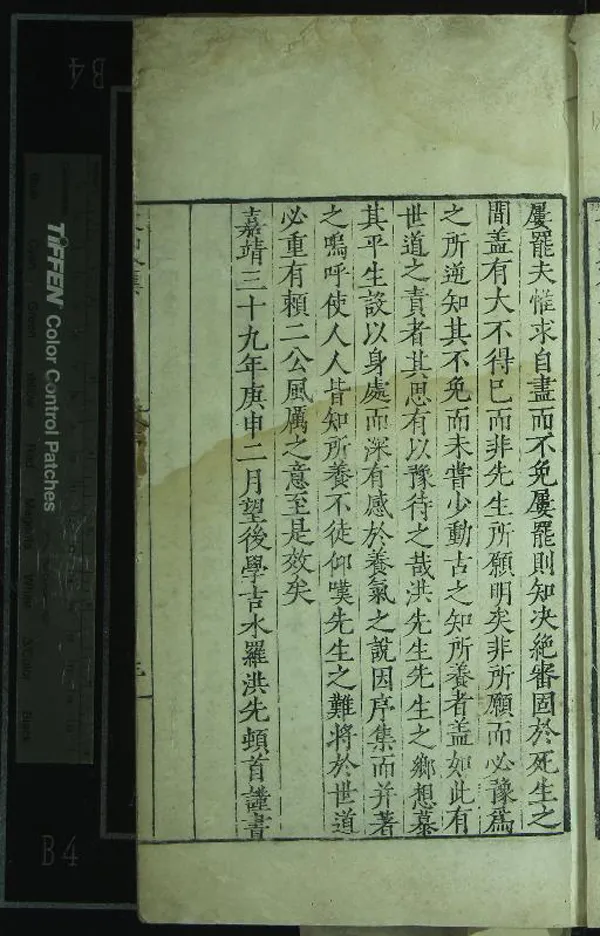 屢罷夫惟求自盡而不免屢罷則知决絶審固於死生之
間盖有大不得已而非先生所願明矣非所願而必豫爲
之所逆知其不免而未嘗少動古之知所養者盖如此有
世道之責者其思有以豫待之哉洪先生先生之鄉想慕
其平生設以身處而深有感於養氣之說因序集而并著
之嗚呼使人人皆知所養不徒仰嘆先生之難將於世道
必重有賴二公風厲之意至是效矣
嘉靖三十九年庚申二月望後學吉水羅洪先頓首謹書
B4
TIFFEN Color Control Patches
B4